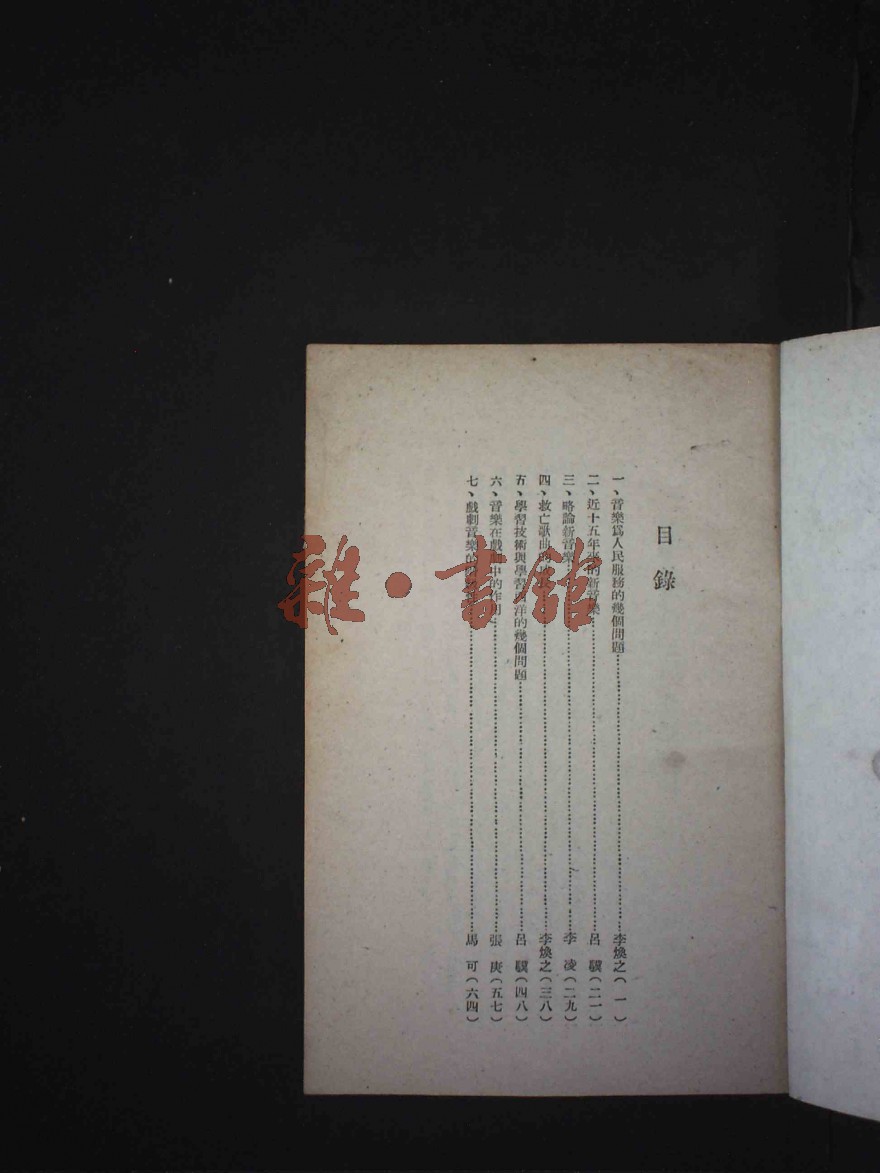 目錄
一、音樂爲人民服務的幾個問題……李煥之（一）
二、近十五年來的新音樂……呂驥（二一）
三、略論新音樂……李凌（二九）
四、救亡歌曲的……李煥之（三八）
五、學習技術與學習西洋的幾個問題……呂驥（四八）
六、音樂在戲劇中的作用……張庚（五七）
七、戲劇音樂的……馬可（六四）
雜·書館